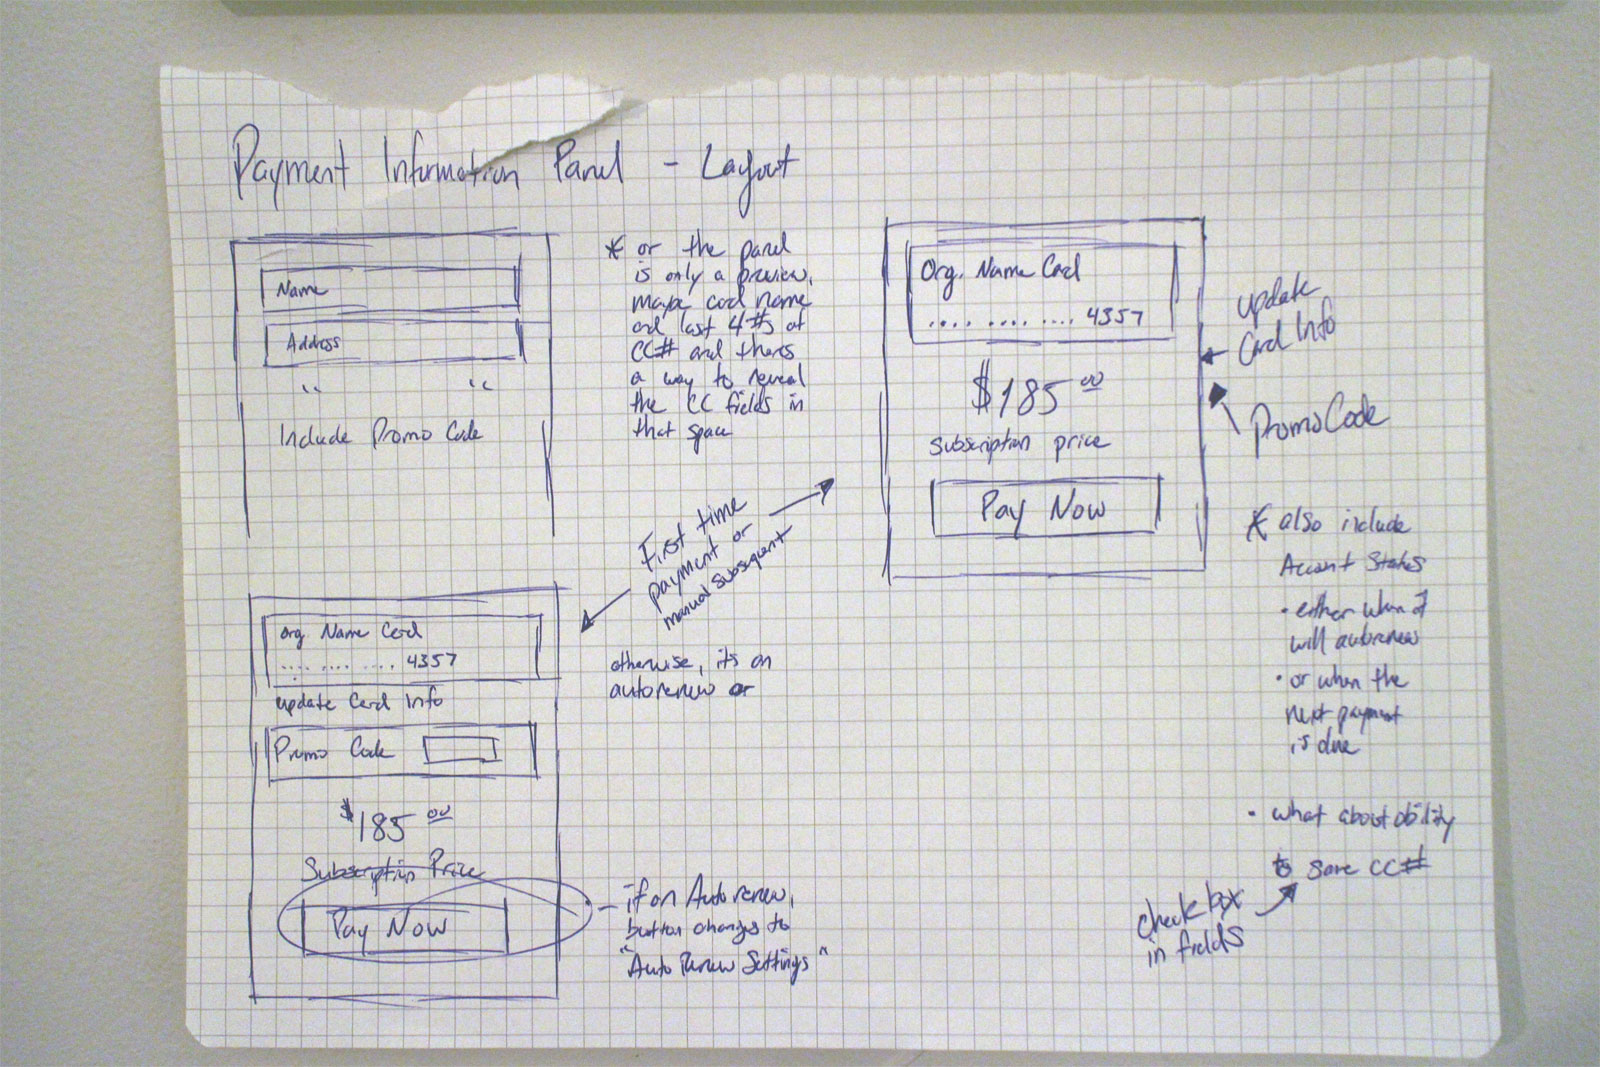 Payment Information Panel - Layout
Name
Address
" "
Include Promo Code
* or the panel
is only a preview,
maybe card name
and last 4 #s of
CC# and theres
a way to reveal
the CC fields in
that space
Org. Name Card
.... .... .... 4357
$185 00
subscription price
Pay Now
update
Card Info
Promo Code
First time
payment or
manual subsequent
otherwise, its on
autorenew or
Org Name Card
.... .... .... 4357
update Card Info
Promo Code
$185 00
Subscription Price
Pay Now
- if on Autorenew,
button changes to
"Auto Renew Settings"
* also include
Account States
• either when it
will autorenew
• or when the
next payment
is due
• what about ability
to save CC#
check box
in fields